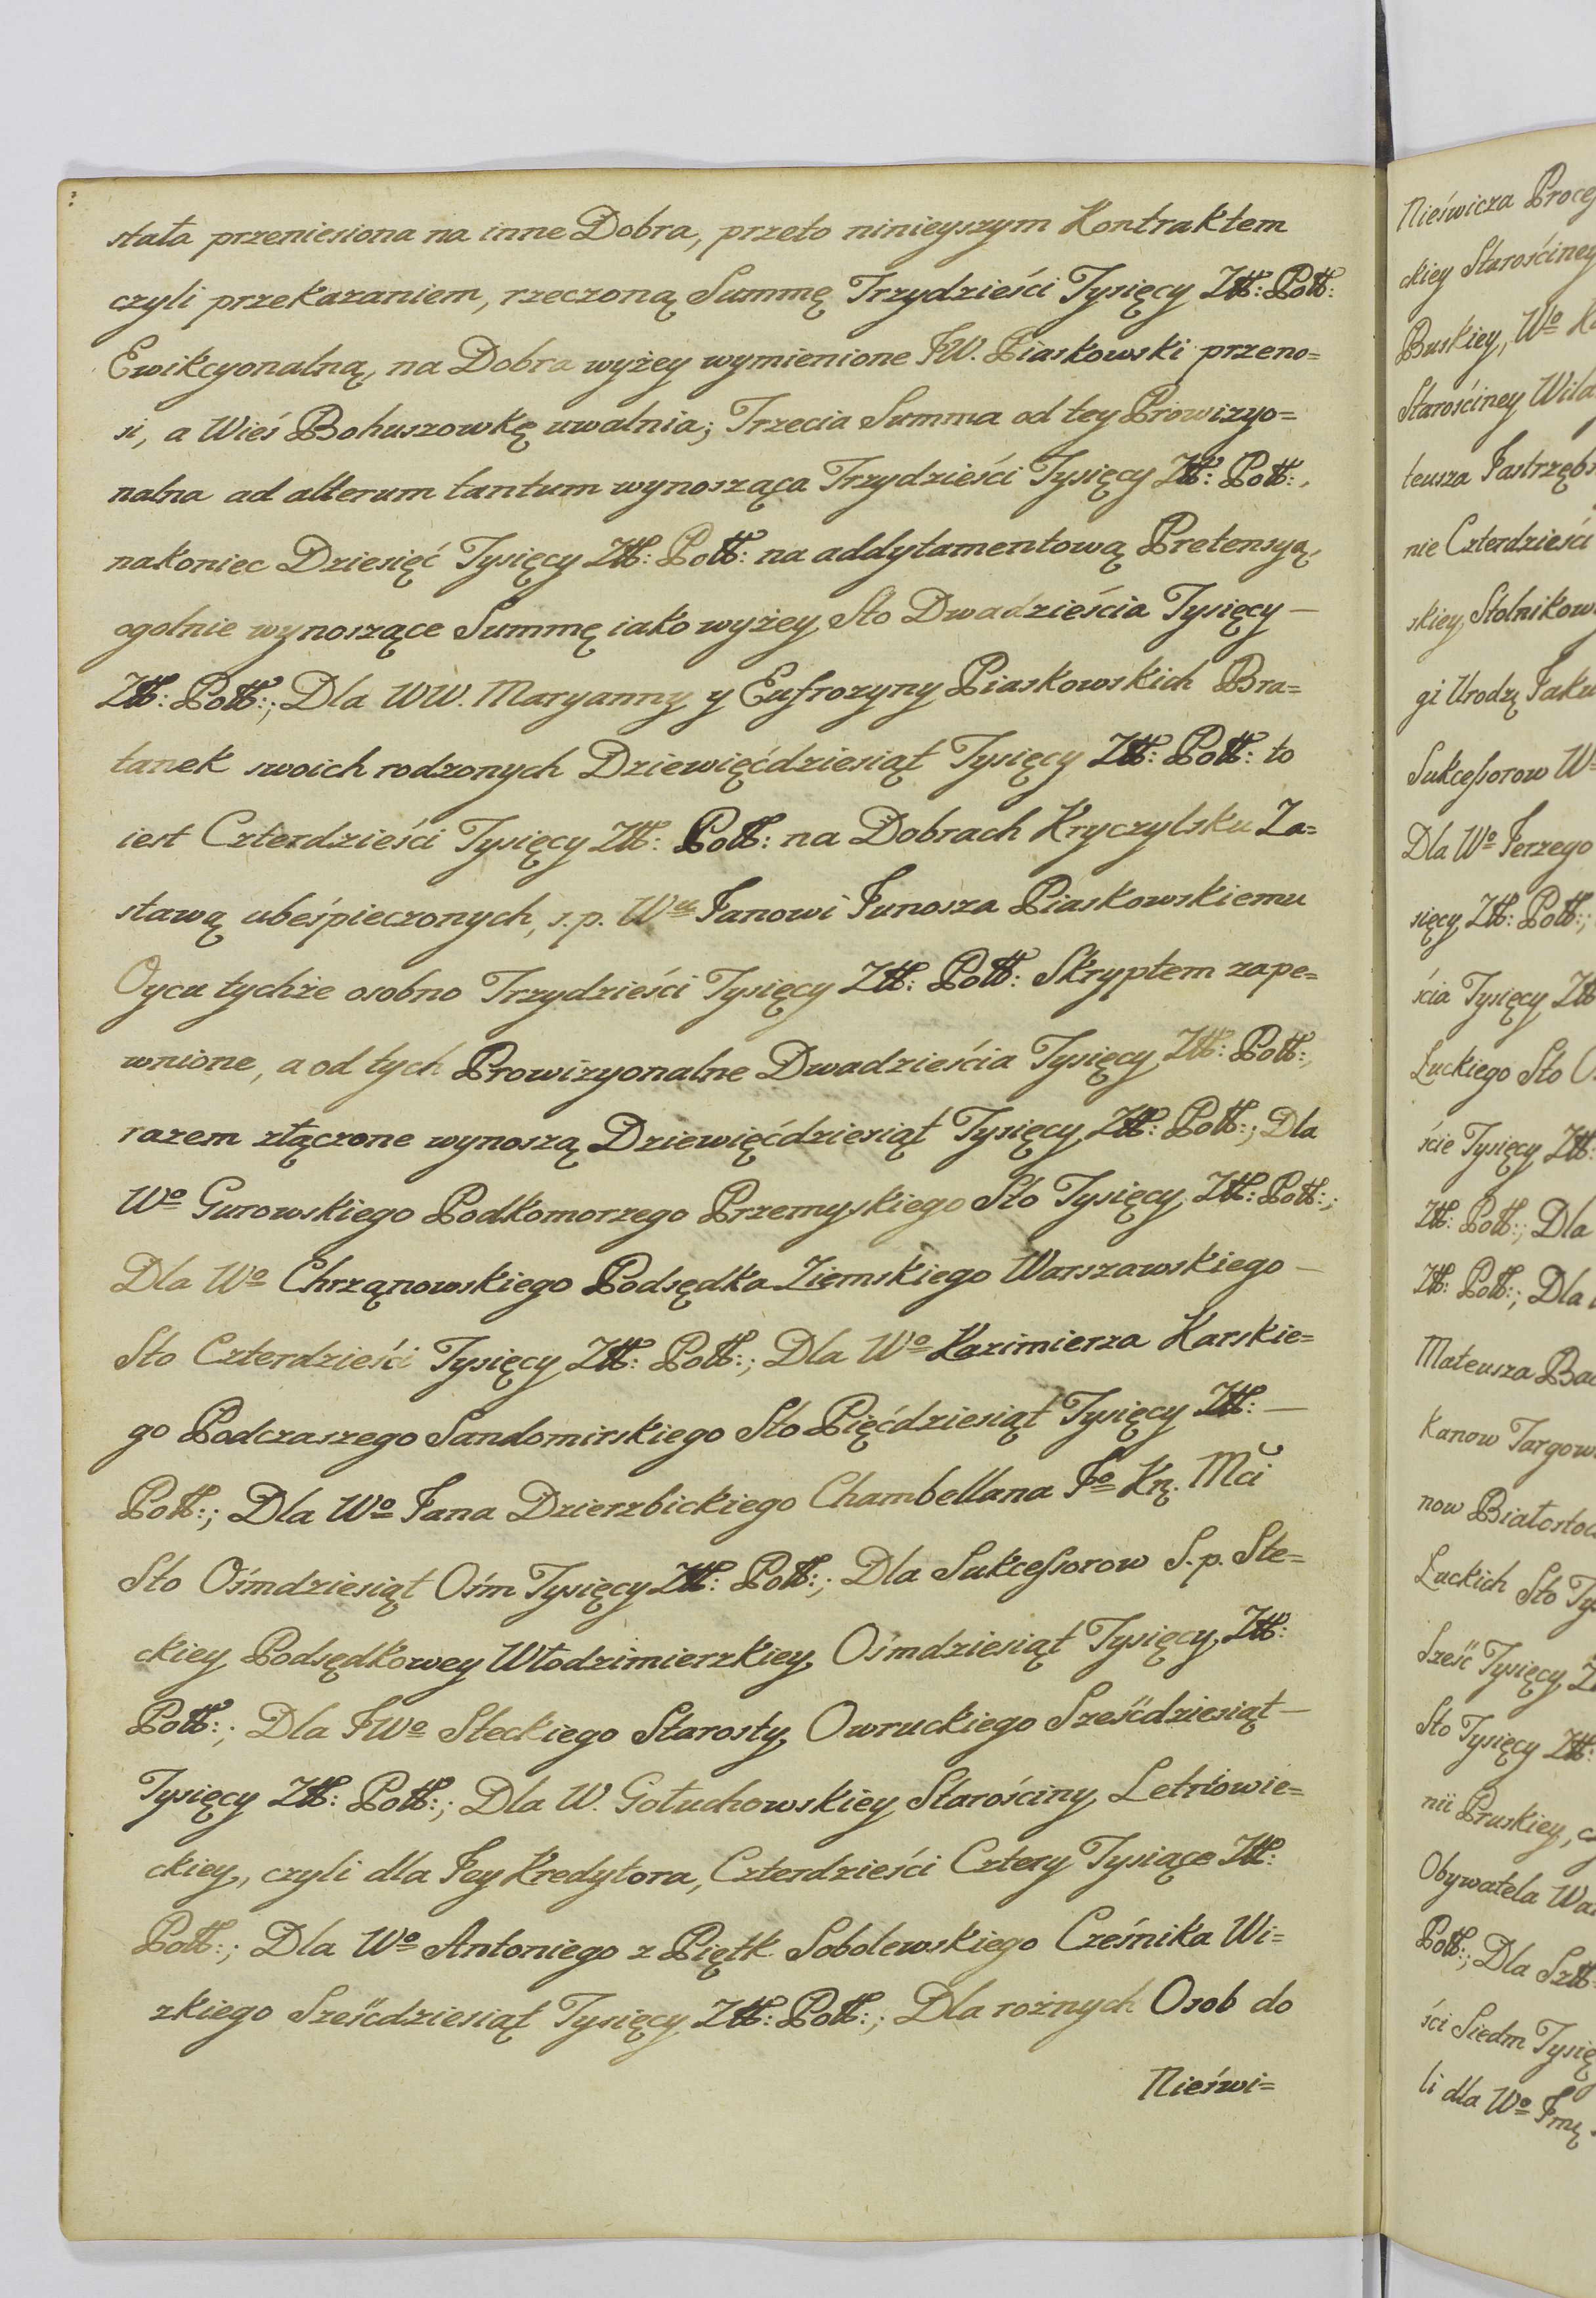 stała przeniesiona na inne Dobra, przeto ninieyszym Kontraktem
czyli przekazaniem, rzeczoną Summę Trzydzieści Tysięcy Złł: Poll:
Ewikcyonalną, na Dobra wyżey wymienione JW. Piaskowski przeno=
si, a Wieś Bohuszowkę uwalnia; Trzecia Summa od tey Prowizyo=
nalna ad alterum tantum wynosząca Trzydzieści Tysięcy Złł: Poll:,
nakoniec Dziesięć Tysięcy Złł: Poll: na addytamentową Pretensyą,
ogolnie wynoszące Summę iako wyżey Sto Dwadzieścia Tysięcy —
Złł: Poll:; Dla WW. Maryanny y Eufrozyny Piaskowskich Bra=
tanek swoich rodzonych Dziewięćdziesiąt Tysięcy Złł: Poll: to
iest Czterdzieści Tysięcy Złł: Poll: na Dobrach Kryczylsku Za=
stawą ubeśpieczonych, s.p. Wu Janowi Junosza Piaskowskiemu
Oycu tychże osobno Trzydzieści Tysięcy Złł: Poll: Skryptem zape=
wnione, a od tych Prowizyonalne Dwadzieścia Tysięcy Złł: Poll:,
razem złączone wynoszą Dziewięćdziesiąt Tysięcy Złł: Poll:; Dla
Wo Gurowskiego Podkomorzego Przemyskiego Sto Tysięcy Złł: Poll:;
Dla Wo Chrząnowskiego Podsędka Ziemskiego Warszawskiego —
Sto Czterdzieści Tysięcy Złł: Poll:; Dla Wo Kazimierza Karskie=
go Podczaszego Sandomirskiego Sto Pięćdziesiąt Tysięcy Złł: —
Poll:; Dla Wo Jana Dzierzbickiego Chambellana Jo Kq. Mci
Sto Ośmdziesiąt Ośm Tysięcy Złł: Poll:; Dla Sukcessorow S.p. Ste=
ckiey Podsędkowey Włodzimierzkiey Ośmdziesiąt Tysięcy Złł:
Poll:; Dla JWo Steckiego Starosty Owruckiego Sześćdziesiąt —
Tysięcy Złł: Poll:; Dla W. Gołuchowskiey Starościny Letniowie=
ckiey, czyli dla Jey Kredytora, Czterdzieści Cztery Tysiące Złł:
Poll:; Dla Wo Antoniego z Piętk Sobolewskiego Cześnika Wi=
zkiego Sześćdziesiąt Tysięcy Złł: Poll:; Dla rożnych Osob do
Nieświ=
Nieświcza Proces
ckiey Starościney
Buskiey, Wo
Starościney
teusza Jastrzębs
nie Czterdzieści
skiey Stolnikow
gi Urodz. Jaku
Sukcessorow W
Dla Wo Jerzego
sięcy Złł: Poll:;
ścia Tysięcy Zł
Łuckiego Sto
ście Tysięcy Złł:
Złł: Poll:; Dla
Złł: Poll:; Dla
Mateusza Ba
Kanow Targow
now Białostoc
Łuckich Sto Ty
Sześć Tysięcy Z
Sto Tysięcy Złł:
nii Pruskiey,
Obywatela Wa
Poll:; Dla
ści Siedm Tysię
li dla Wo